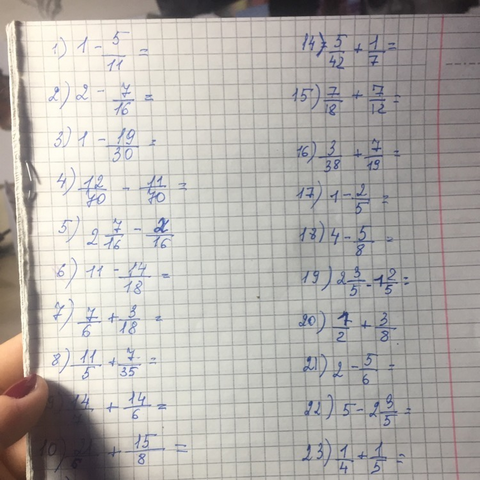 1) 1 - 5/11 =
2) 2 - 7/16 =
3) 1 - 19/30 =
4) 12/70 - 11/70 =
5) 2 7/16 - 2/16
6) 11 - 14/18 =
7) 7/6 + 3/18 =
8) 11/5 + 7/35 =
14/ + 14/6 =
10) /6 + 15/8 =
14) 5/42 + 1/7 =
15) 7/18 + 7/12 =
16) 3/38 + 7/19 =
17) 1 - 2/5 =
18) 4 - 5/8 =
19) 2 3/5 - 1 2/5 =
20) 1/2 + 3/8
21) 2 - 5/6 =
22) 5 - 2 3/5 =
23) 1/4 + 1/5 =